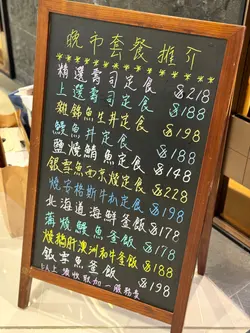 晚市套餐推介
精選壽司定食 $218
上選壽司定食 $188
雜錦魚生丼定食 $198
鰻魚丼定食 $188
鹽燒鯖魚定食 $148
銀雪魚西京燒定食 $228
燒安格斯牛扒定食 $198
北海道海鮮釜飯 $178
蒲燒鰻魚釜飯 $178
燒鵝肝澳洲和牛釜飯 $188
銀雪魚釜飯 $198
以上須收取加一服務費